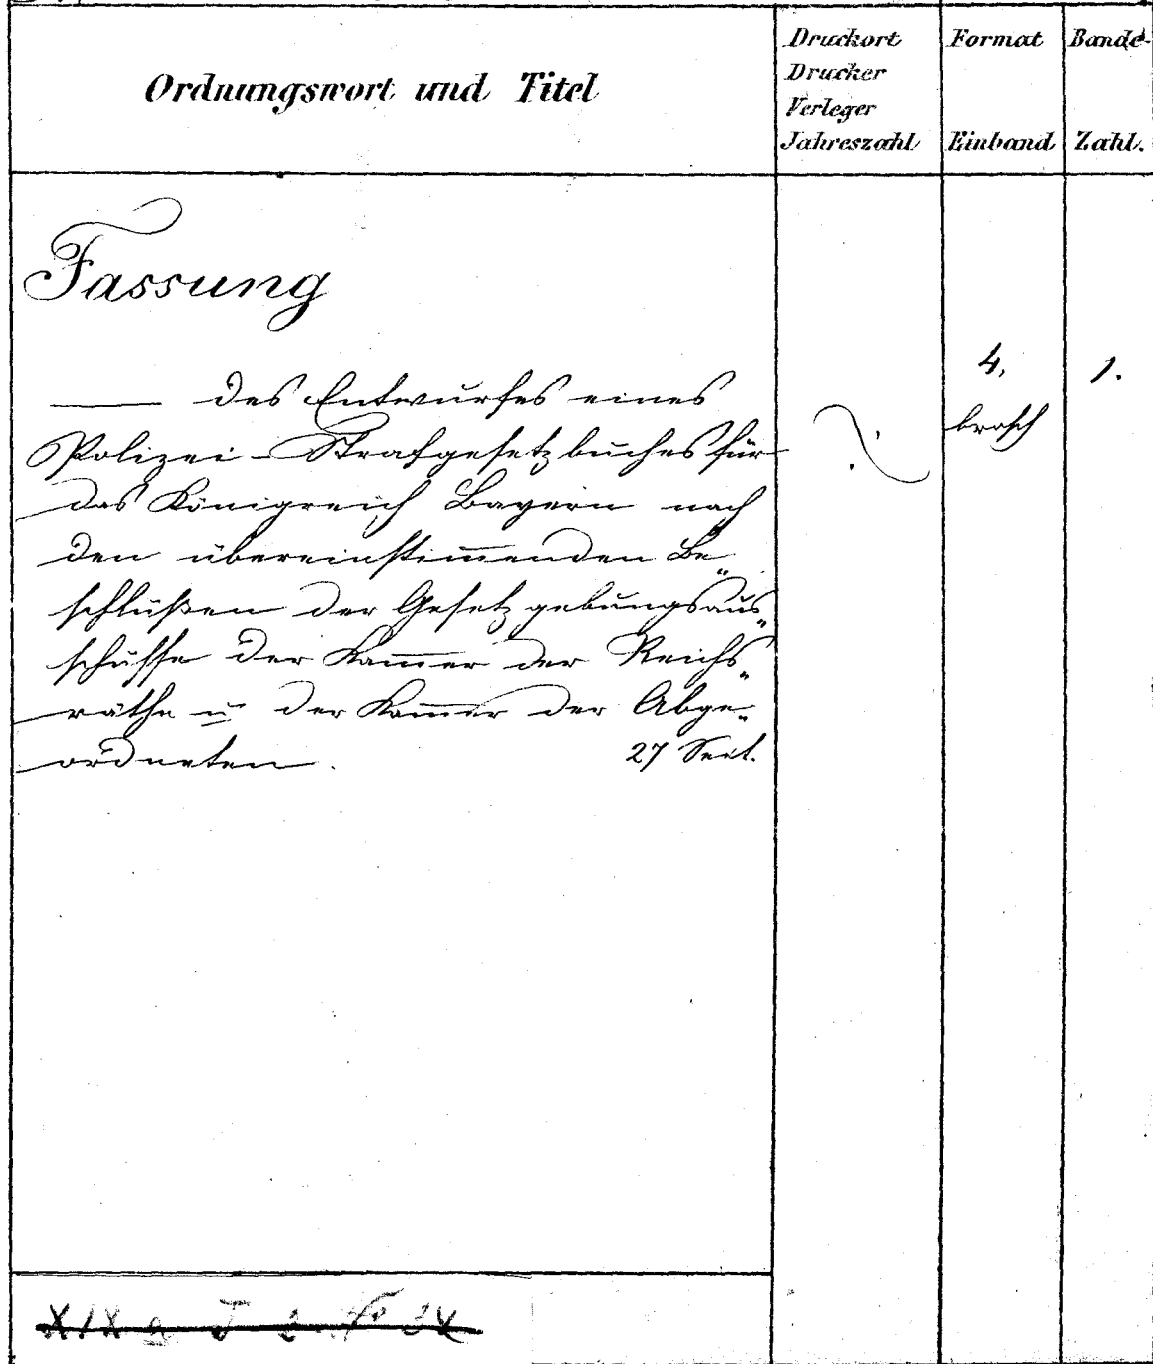 Ordnungswort und Titel
Druckort
Drucker
Verleger
Jahreszahl
Format
Einband
Bände-
Zahl.
Fassung
—— des Entwurfes eines
Polizei-Strafgesetzbuches für
das Königreich Bayern nach
den übereinstim̅enden Be„
schlüßen der Gesetzgebungsaus„
schüsse der Kam̅er der Reichs„
räthe u̅ der Kam̅er der Abge„
ordneten.
27 Seit.
4,
brosch
1.